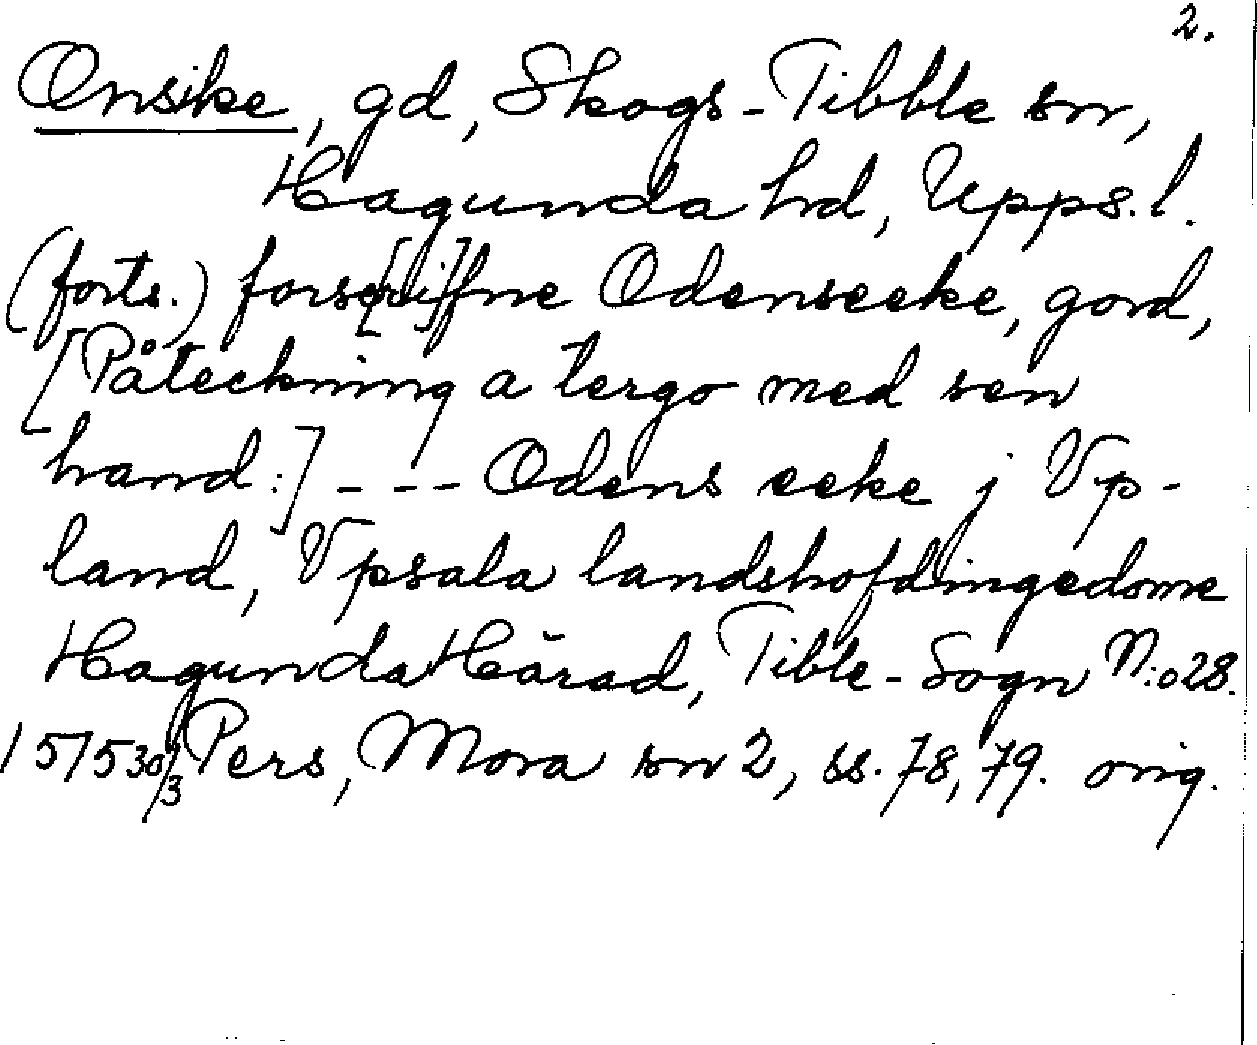 2.
Onsike, gd, Skogs-Tibble sn,
Hagunda hd, Upps. l.
(forts.) forsc[ri]ffne Odenseeke, gord,
[Påteckning a tergo med sen
hand:] --- Odens eeke j Vp-
land, Vpsala landshofdingedome
Hagunda Härad, Tible-Sogn N:o 28.
1575 30/3 Pers, Mora sn 2, ss. 78, 79. orig.